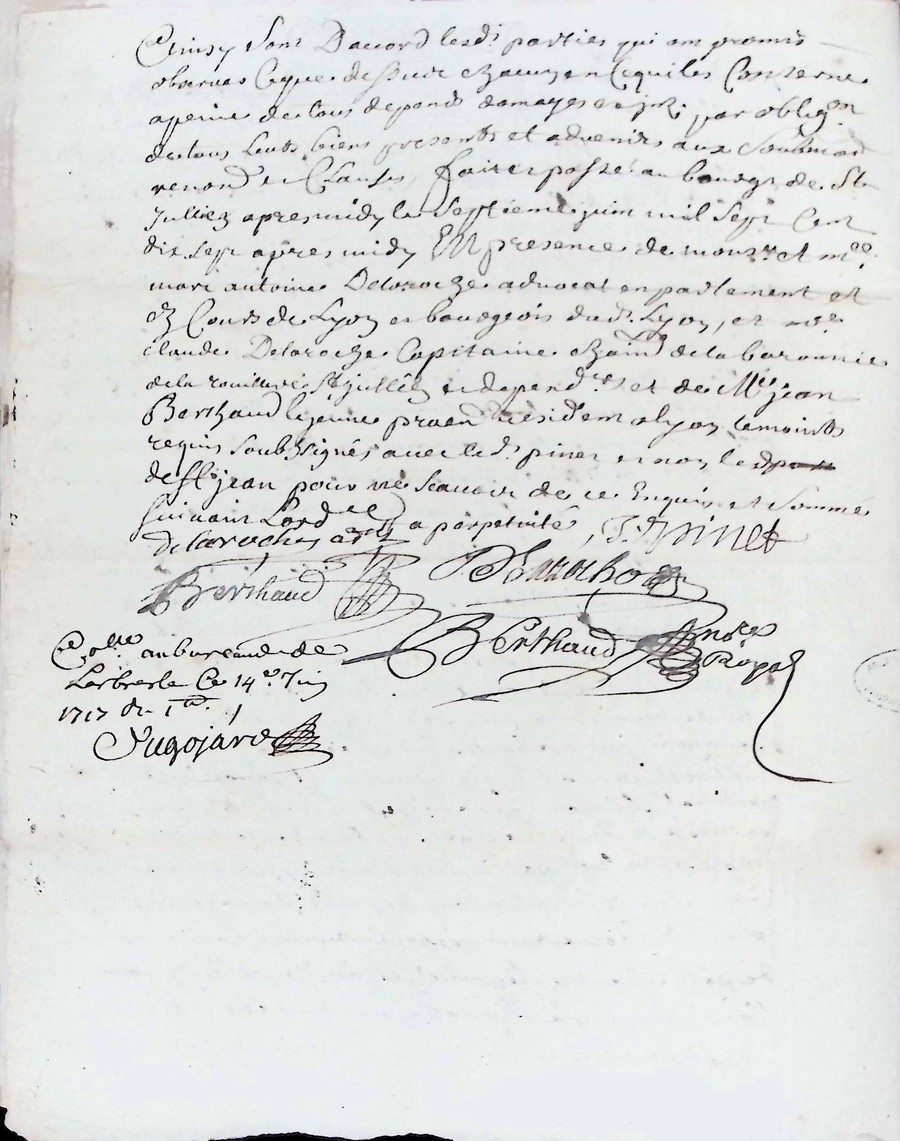 Cainsy Sont Daccord lesd. parties qui ont promis
observer Ceque dessus chacun en Cequi les Concerne
a peine de tous depends domages et int. par oblig.on
de tous leurs biens presents et advenirs aux Soubmi.on
renond. et Clauses, fait et passé au bourg de St
Jullien apres midy le Septieme juin mil Sept Cent
dix Sept apres midy En presence de mons.r et m.e
marc antoine Delaroche advocat en parlement et
Cours de Lyon et bourgeois dud. Lyon, et m.re
claude Delaroche Capitaine de la baronnie
de la St jullien et depend.es et de M.e jean
Berthaud le jeune resident a lyon temoints
requis Soubsignés avec led. pinet et non led.
de St jean pour ne Scavoir de ce Enquis et Sommé
Suivant Lord.ce a perpetuité, Pinet
Delaroche
Berthaud Delaroche
Berthaud no.re Royal
C.olle au bureau de
Larbresle Ce 14.e Juin
1717